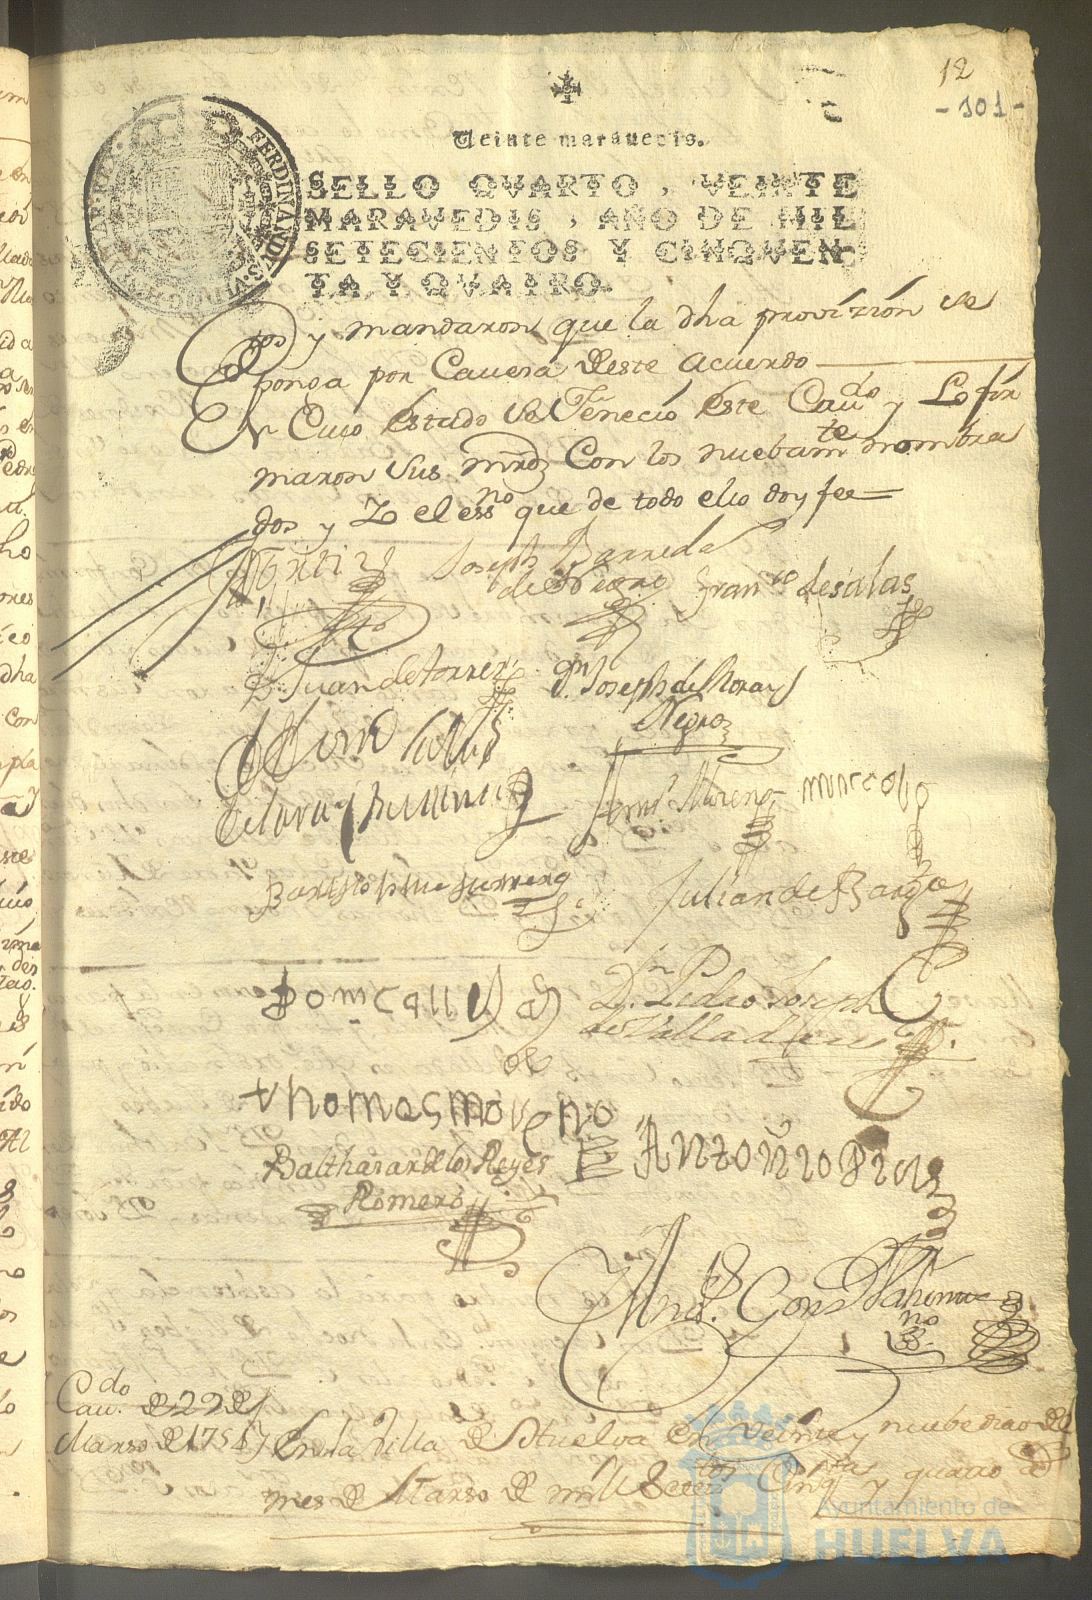 12
-101-
Veinte maravedis.
SELLO QVARTO, VEINTE
MARAVEDIS, AÑO DE MIL
SETECIENTOS Y CINQVEN
TA Y QVATRO.
FERDINANDVS·VI·D·G·HISPANIAR·REX·
dos y mandaron que la dha provizion se
ponga por Cavesa deste acuerdo
En Cuio estado se feneció este Cavdo y Lo fir
maron sus mrds Con los nuebamte nombra
dos y Yo el essno que de todo ello doy fee=
Ortiz Joseph Barreda
de Negro Franco de salas
D. Juan de torres Dn Joseph de Mora y
Negro
Moreno
Bartolome Julian de Borg
Dn Pedro Joseph
de Valladares
thomas moreno
Balthasar de los Reyes Antoñio
Romero
Cavdo de 22 de
Marso de 1754 En la Villa de Huelva en Veinte y nuebe dias del
mes de Marso de mill Setetos Cinqta y quatro as
Ayuntamiento de
HUELVA